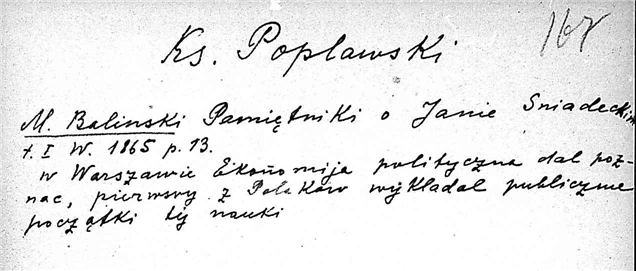 167
Ks. Poplawski
M. Balinski Pamiętniki o Janie Sniadeckim
t. I W. 1865 p. 13.
w Warszawie Ekonomija polityczna dal poz-
nac, pierwszy z Polakow wykladal publicznie
początki tej nauki